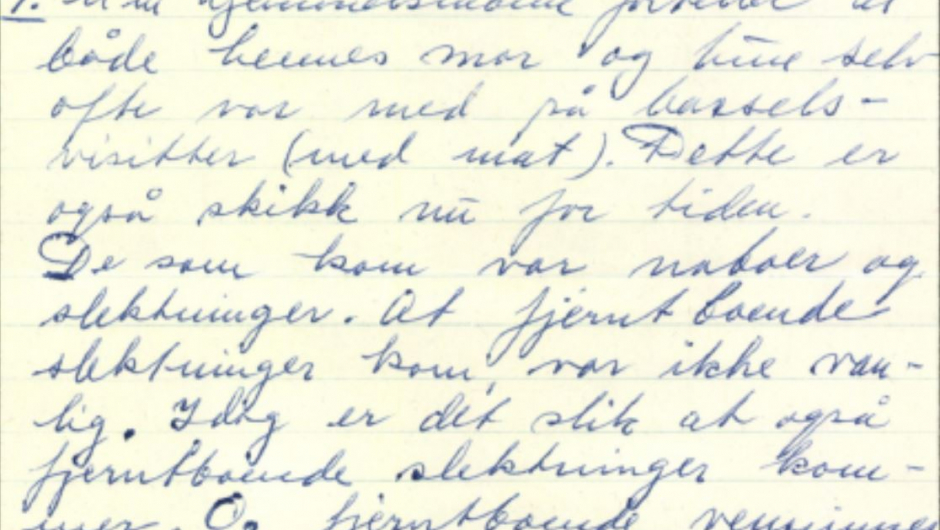 1. Min hjemmelsmann forteller at
både hennes mor og hun selv
ofte var med på barsels-
visitter (med mat). Dette er
også skikk nu for tiden.
De som kom var naboer og
slektninger. At fjernt boende
slektninger kom, var ikke van-
lig. Idag er det slik at også
fjerntboende slektninger kom-
mer. Og fjerntboende venninne